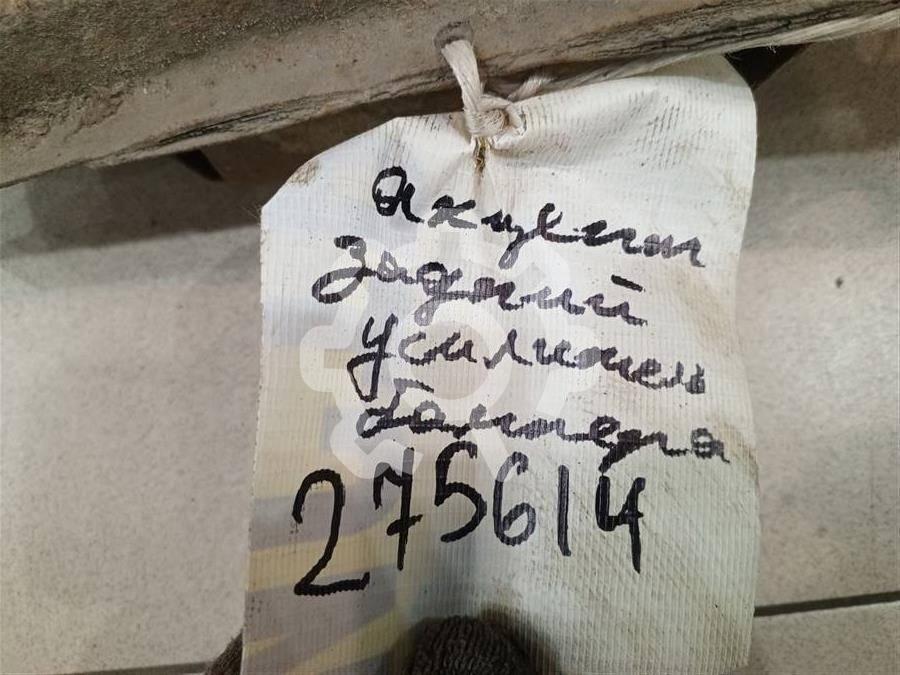 акцент
задний
усилитель
бампера
275614